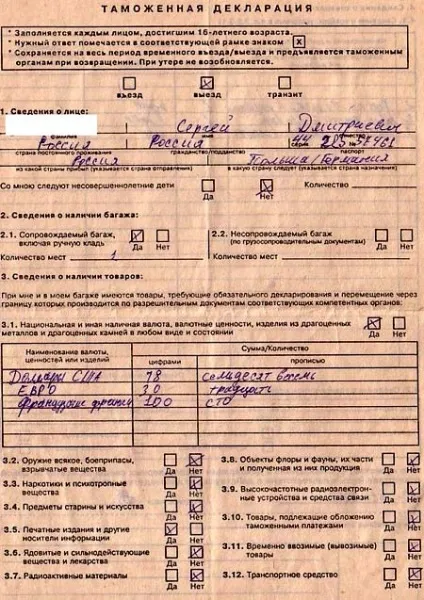 ТАМОЖЕННАЯ ДЕКЛАРАЦИЯ
* Заполняется каждым лицом, достигшим 16-летнего возраста.
* Нужный ответ помечается в соответствующей рамке знаком X
* Сохраняется на весь период временного въезда/выезда и предъявляется таможенным
органам при возвращении. При утере не возобновляется.
въезд выезд транзит
1. Сведения о лице:
Сергей Дмитриевич
фамилия
Россия Россия
страна постоянного проживания гражданство/подданство серия № паспорт
Россия Польша/Германия
из какой страны прибыл (указывается страна отправления) в какую страну следует (указывается страна назначения)
Со мною следуют несовершеннолетние дети Да Нет Количество
2. Сведения о наличии багажа:
2.1. Сопровождаемый багаж, включая ручную кладь Да Нет
2.2. Несопровождаемый багаж (по грузосопроводительным документам) Да Нет
Количество мест 1 Количество мест
3. Сведения о наличии товаров:
При мне и в моем багаже имеются товары, требующие обязательного декларирования и перемещение через
границу которых производится по разрешительным документам соответствующих компетентных органов:
3.1. Национальная и иная наличная валюта, валютные ценности, изделия из драгоценных
металлов и драгоценных камней в любом виде и состоянии Да Нет
Наименование валюты, ценностей или изделий Сумма/Количество
цифрами прописью
Доллары США 78 семьдесят восемь
ЕВРО 30 тридцать
Французские франки 100 сто
3.2. Оружие всякое, боеприпасы, взрывчатые вещества Да Нет
3.3. Наркотики и психотропные вещества Да Нет
3.4. Предметы старины и искусства Да Нет
3.5. Печатные издания и другие носители информации Да Нет
3.6. Ядовитые и сильнодействующие вещества и лекарства Да Нет
3.7. Радиоактивные материалы Да Нет
3.8. Объекты флоры и фауны, их части и полученная из них продукция Да Нет
3.9. Высокочастотные радиоэлектронные устройства и средства связи Да Нет
3.10. Товары, подлежащие обложению таможенными платежами Да Нет
3.11. Временно ввозимые (вывозимые) товары Да Нет
3.12. Транспортное средство Да Нет